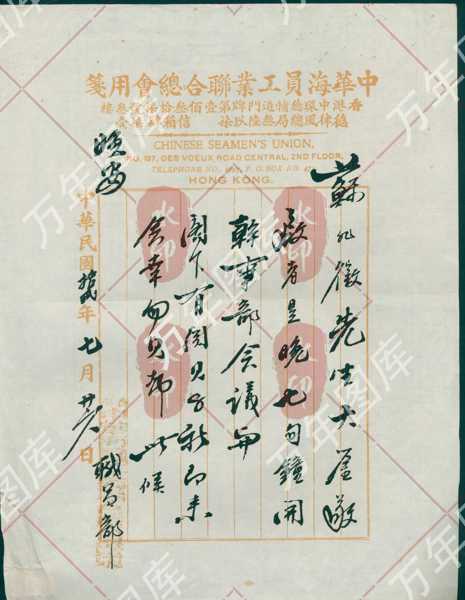 中華海員工業聯合總會用箋
香港中環德輔道門牌第壹佰叁拾柒號叁樓
德律風總局叁陸玖柒 信箱
CHINESE SEAMEN'S UNION,
NO. 137, DES VOEUX ROAD CENTRAL, 2ND FLOOR,
TELEPHONE NO. P. O. BOX NO.
HONG KONG.
蘇兆徵先生大鑒
敬啟者是晚七句鐘開
幹事部會議
閣下有關見字祈即來
會幸勿見却 此候
順安
中華民國年七月廿日 職員部
万年图库